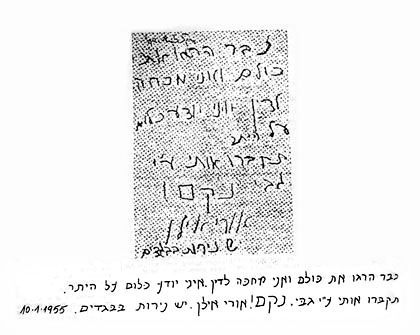 כבר הרגו את
כולם ואני מחכה
לדין איני יודע כלום
על היתר
תקברו אותי ע"י
גבי נקם!
אורי אילן
יש נירות בבגדים
כבר הרגו את כולם ואני מחכה לדין. איני יודע כלום על היתר.
תקברו אותי ע"י גבי. נקם! אורי אילן. יש נירות בבגדים. 10.1.1955